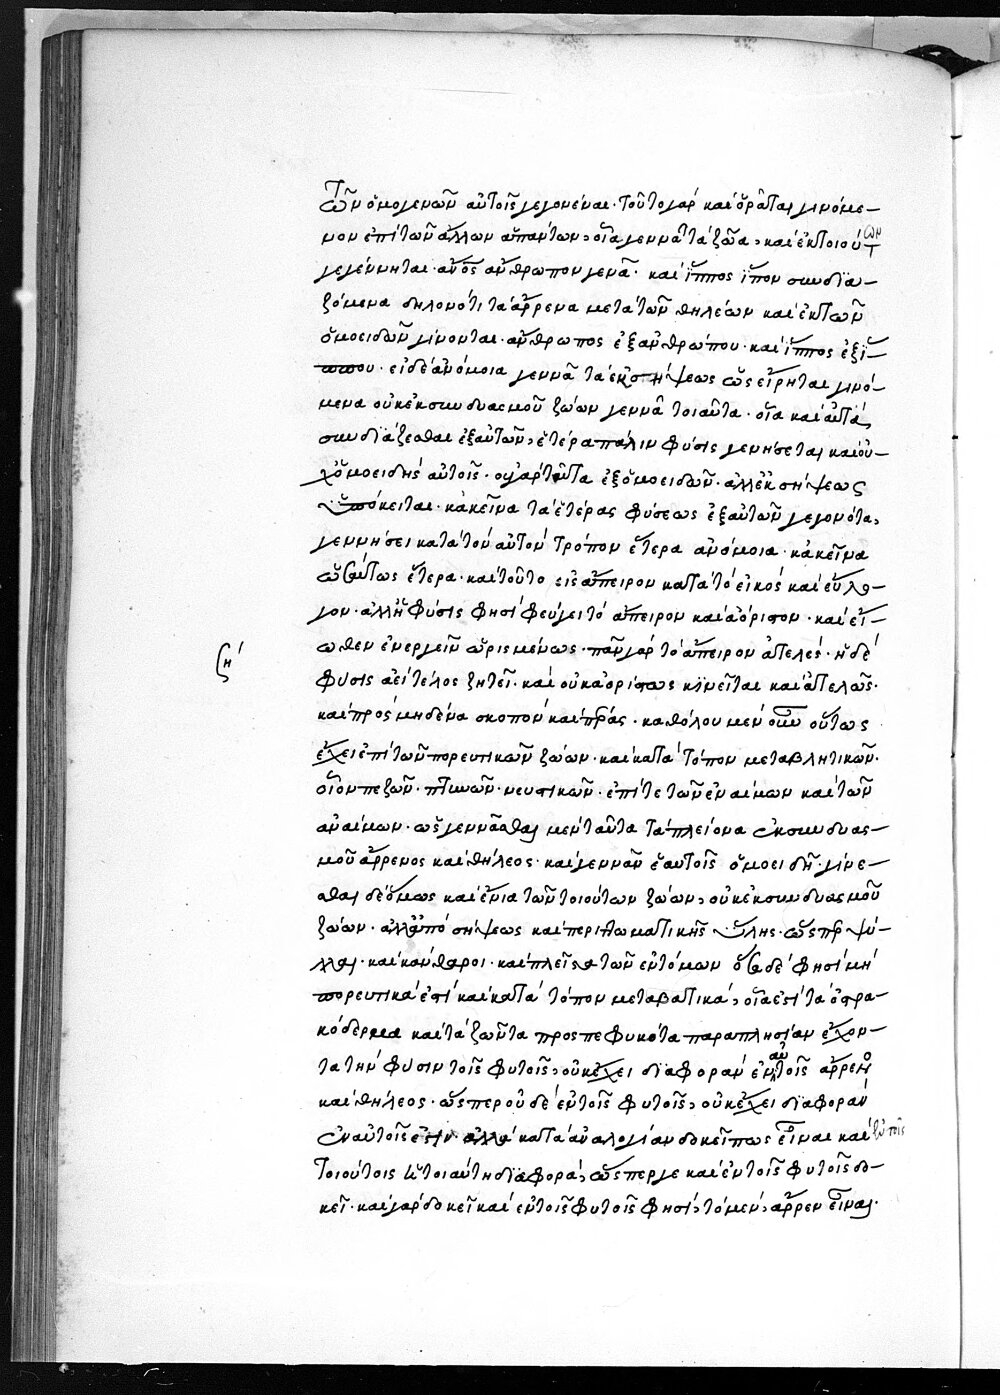 τῶν ὁμογενῶν αὐτοῖς γεγονέναι· τοῦτο γὰρ καὶ ὁρᾶται γινόμε-
νον ἐπὶ τῶν ἄλλων ἁπάντων, οἷα γεννᾶ τὰ ζῶα, καὶ ἐκ τοιούτων
γεγέννηται· ἄνος ἄνθρωπον γενᾶ· καὶ ἵππος ἵπον συνδϊα-
ζόμενα δηλονότι τὰ ἄρρενα μετὰ τῶν θηλέων καὶ ἐκ τῶν
ὁμοειδῶν γίνονται· ἄνθρωπος ἐξ ἀνθρώπου· καὶ ἵππος ἐξ ἵ-
ππου· εἰ δὲ ἀνόμοια γεννᾶ τὰ ἐκ σήψεως ὡς εἴρηται γινό-
μενα οὐκ ἐκ συνδυασμοῦ ζώων γεννᾶ τοιαῦτα· οἷα καὶ αὐτὰ,
συνδϊάζεσθαι ἐξ αὐτῶν, ἑτέρα πάλιν φύσις γενήσεται καὶ οὐ-
χ ὁμοειδὴς αὐτοῖς· οὐ γὰρ ταῦτα ἐξ ὁμοειδῶν· ἀλλ ἐκ σήψεως
ὑπόκειται· κἀκεῖνα τὰ ἑτέρας φύσεως ἐξ αὐτῶν γεγονότα,
γεννήσει κατὰ τὸν αὐτὸν τρόπον ἕτερα ἀνόμοια· κἀκεῖνα
ὡσαύτως ἕτερα· καὶ τοῦτο εἰς ἄπειρον κατὰ τὸ εἰκὸς καὶ εὔλο-
γον· ἀλλ ἡ φύσις φησὶ φεύγει τὸ ἄπειρον καὶ ἀόριστον· καὶ εἴ-
ωθεν ἐνεργεῖν ὡρισμένως· πᾶν γὰρ τὸ ἄπειρον ἀτελές· ἡ δὲ
ζη΄
φύσις ἀεὶ τέλος ζητεῖ· καὶ οὐκ ἀορίστως κϊνεῖται καὶ ἀτελῶς·
καὶ πρὸς μηδένα σκοπὸν καὶ πέρας· καθόλου μὲν οὖν οὕτως
ἔχει ἐπὶ τῶν πορευτικῶν ζώων· καὶ κατὰ τόπον μεταβλητικῶν·
οἷον πεζῶν· πτηνῶν· νευστικῶν· ἐπί τε τῶν ἐναίμων καὶ τῶν
ἀναίμων· ὡς γεννᾶσθαι μὲν ταῦτα τὰ πλείονα ἐκ συνδυασ-
μοῦ ἄρρενος καὶ θήλεος· καὶ γεννᾶν ἑαυτοῖς ὁμοειδῆ· γίνε-
σθαι δὲ ὅμως καὶ ἔνια τῶν τοιούτων ζώων, οὐκ ἐκ συνδυασμοῦ
ζώων· ἀλλ ἀπὸ σήψεως καὶ περιττωματικῆς ὕλης· ὥσπερ ψύ-
λλαι· καὶ κάνθαροι· καὶ πλεῖστα τῶν ἐντόμων ὅσα δὲ φησὶ μὴ
πορευτικά ἐστὶ καὶ κατὰ τόπον μεταβατικά, οἷα ἐστὶ τὰ ὀστρα-
κόδερμα καὶ τὰ ζῶντα προσπεφυκότα παραπλησίαν ἔχον-
τα τὴν φύσιν τοῖς φυτοῖς, οὐκ ἔχει δϊαφορὰν ἐν αὐτοῖς ἄρρενος
καὶ θήλεος· ὥσπερ οὐδὲ ἐν τοῖς φυτοῖς, οὐκ ἔχει δϊαφορὰν
ἐν αὐτοῖς ἐστιν· ἀλλὰ κατὰ ἀναλογίαν δοκεῖ πως εἶναι καὶ ἐν τοῖς
τοιούτοις ἡ τοιαύτη δϊαφορά, ὥσπερ γε καὶ ἐν τοῖς φυτοῖς δο-
κεῖ· καὶ γὰρ δοκεῖ καὶ ἐν τοῖς φυτοῖς φησὶ, τὸ μὲν, ἄρρεν εἶναι·